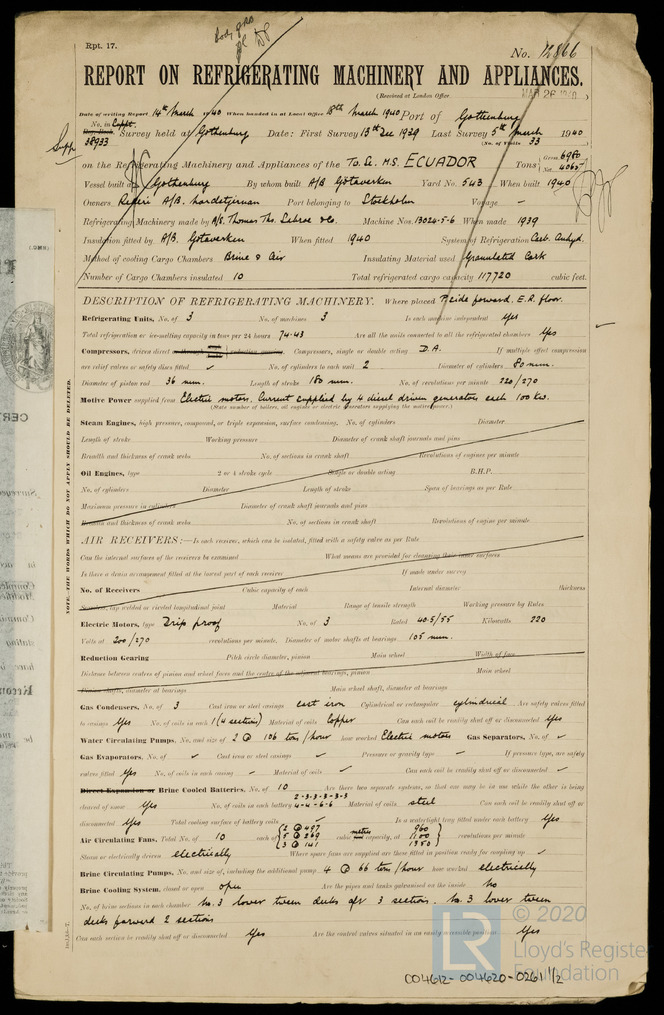 Rpt. 17.
No. 12866
REPORT ON REFRIGERATING MACHINERY AND APPLIANCES.
(Received at London Office MAR 26 1940)
Date of writing Report 14th March 1940 When handed in at Local Office 18th March 1940 Port of Gothenburg
No. in Suppt.
38933 Survey held at Gothenburg Date: First Survey 13th Dec 1939 Last Survey 5th March 1940
(No. of Visits 33
on the Refrigerating Machinery and Appliances of the To. Sc. M.S. ECUADOR Tons Gross 6980 Net 4065
Vessel built at Gothenburg By whom built A/B Götaverken Yard No. 543 When built 1940
Owners Rederi A/B. Nordstjernan Port belonging to Stockholm Voyage -
Refrigerating Machinery made by A/S. Thomas Ths. Sabroe & Co. Machine Nos. 13024-5-6 When made 1939
Insulation fitted by A/B. Götaverken When fitted 1940 System of Refrigeration Carb. Anhyd.
Method of cooling Cargo Chambers Brine & Air Insulating Material used Granulated Cork
Number of Cargo Chambers insulated 10 Total refrigerated cargo capacity 117720 cubic feet.
DESCRIPTION OF REFRIGERATING MACHINERY. Where placed P. side forward. E.R. floor.
Refrigerating Units, No. of 3 No. of machines 3 Is each machine independent Yes
Total refrigeration or ice-melting capacity in tons per 24 hours 74.43 Are all the units connected to all the refrigerated chambers Yes
Compressors, driven direct or through reduction gearing. Compressors, single or double acting D.A. If multiple effect compression
are relief valves or safety discs fitted ✓ No. of cylinders to each unit 2 Diameter of cylinders 80 mm.
Diameter of piston rod 36 mm. Length of stroke 180 mm. No. of revolutions per minute 220/270
Motive Power supplied from Electric motors. Current supplied by 4 diesel driven generators each 100 Kw.
(State number of boilers, oil engines or electric generators supplying the motive power.)
Steam Engines, high pressure, compound, or triple expansion, surface condensing. No. of cylinders Diameter
Length of stroke Working pressure Diameter of crank shaft journals and pins
Breadth and thickness of crank webs No. of sections in crank shaft Revolutions of engine per minute
Oil Engines, type 2 or 4 stroke cycle Single or double acting B.H.P.
No. of cylinders Diameter Length of stroke Span of bearings as per Rule
Maximum pressure in cylinders Diameter of crank shaft journals and pins
Breadth and thickness of crank webs No. of sections in crank shaft Revolutions of engine per minute
AIR RECEIVERS:—Is each receiver, which can be isolated, fitted with a safety valve as per Rule
Can the internal surfaces of the receivers be examined What means are provided for cleaning their inner surfaces
Is there a drain arrangement fitted at the lowest part of each receiver If made under survey
No. of Receivers Cubic capacity of each Internal diameter thickness
Seamless, lap welded or riveted longitudinal joint Material Range of tensile strength Working pressure by Rules
Electric Motors, type Drip proof No. of 3 Rated 40.5/55 Kilowatts 220
Volts at 200/270 revolutions per minute, Diameter of motor shafts at bearings 105 mm.
Reduction Gearing Pitch circle diameter, pinion Main wheel Width of face
Distance between centres of pinion and wheel faces and the centre of the adjacent bearings, pinion Main wheel
Pinion shafts, diameter at bearings Main wheel shaft, diameter at bearings
Gas Condensers, No. of 3 Cast iron or steel casings cast iron Cylindrical or rectangular cylindrical Are safety valves fitted
to casings Yes No. of coils in each 1 (4 sections) Material of coils Copper Can each coil be readily shut off or disconnected Yes
Water Circulating Pumps, No. and size of 2 @ 106 tons/hour how worked Electric motors Gas Separators, No. of ✓
Gas Evaporators, No. of ✓ Cast iron or steel casings ✓ Pressure or gravity type ✓ If pressure type, are safety
valves fitted Yes No. of coils in each casing ✓ Material of coils ✓ Can each coil be readily shut off or disconnected ✓
Direct Expansion or Brine Cooled Batteries, No. of 10 Are there two separate systems, so that one may be in use while the other is being
cleared of snow Yes No. of coils in each battery 2-3-3-3-3-3 4-4-6-6 Material of coils steel Can each coil be readily shut off or
disconnected Yes Total cooling surface of battery coils ✓ Is a watertight tray fitted under each battery Yes
Air Circulating Fans, Total No. of 10 each of 2 @ 497 5 @ 269 3 @ 141 cubic metres capacity at 960 1100 1350 revolutions per minute
Steam or electrically driven electrically Where spare fans are supplied are these fitted in position ready for coupling up ✓
Brine Circulating Pumps, No. and size of, including the additional pump 4 @ 66 tons/hour how worked electrically
Brine Cooling System, closed or open open Are the pipes and tanks galvanised on the inside No
No. of brine sections in each chamber No. 3 lower tween decks aft 3 sections. No. 3 lower tween
decks forward 2 sections
Can each section be readily shut off or disconnected Yes Are the control valves situated in an easily accessible position Yes
NOTE.—THE WORDS WHICH DO NOT APPLY SHOULD BE DELETED.
© 2020
LR Lloyd's Register
Foundation
004612-004620-0261 1/2